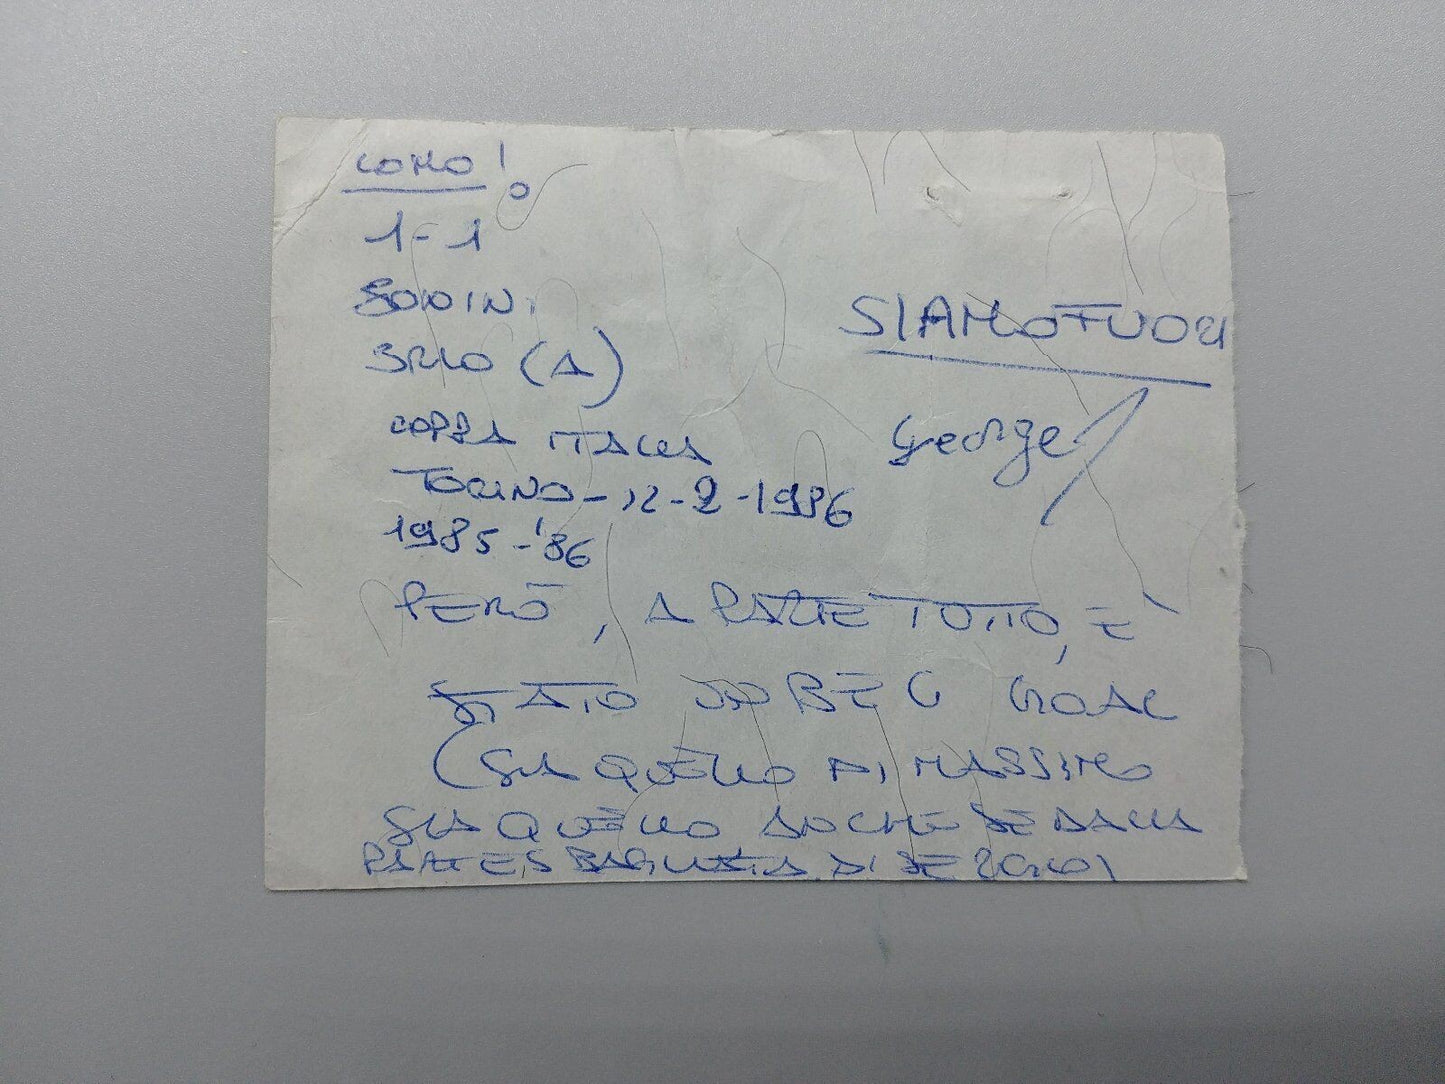 COMO!
1-1
BONINI
BRIO (A)
COPPA ITALIA
TORINO - 12-2-1986
1985-'86
SIAMO FUORI
George
PERÒ, A PARTE TUTTO, È
STATO UN BEL GOAL
(SIA QUELLO DI MASSIMO
SIA QUELLO ANCHE SE DALLA
PARTE SBAGLIATA DI SERGIO)